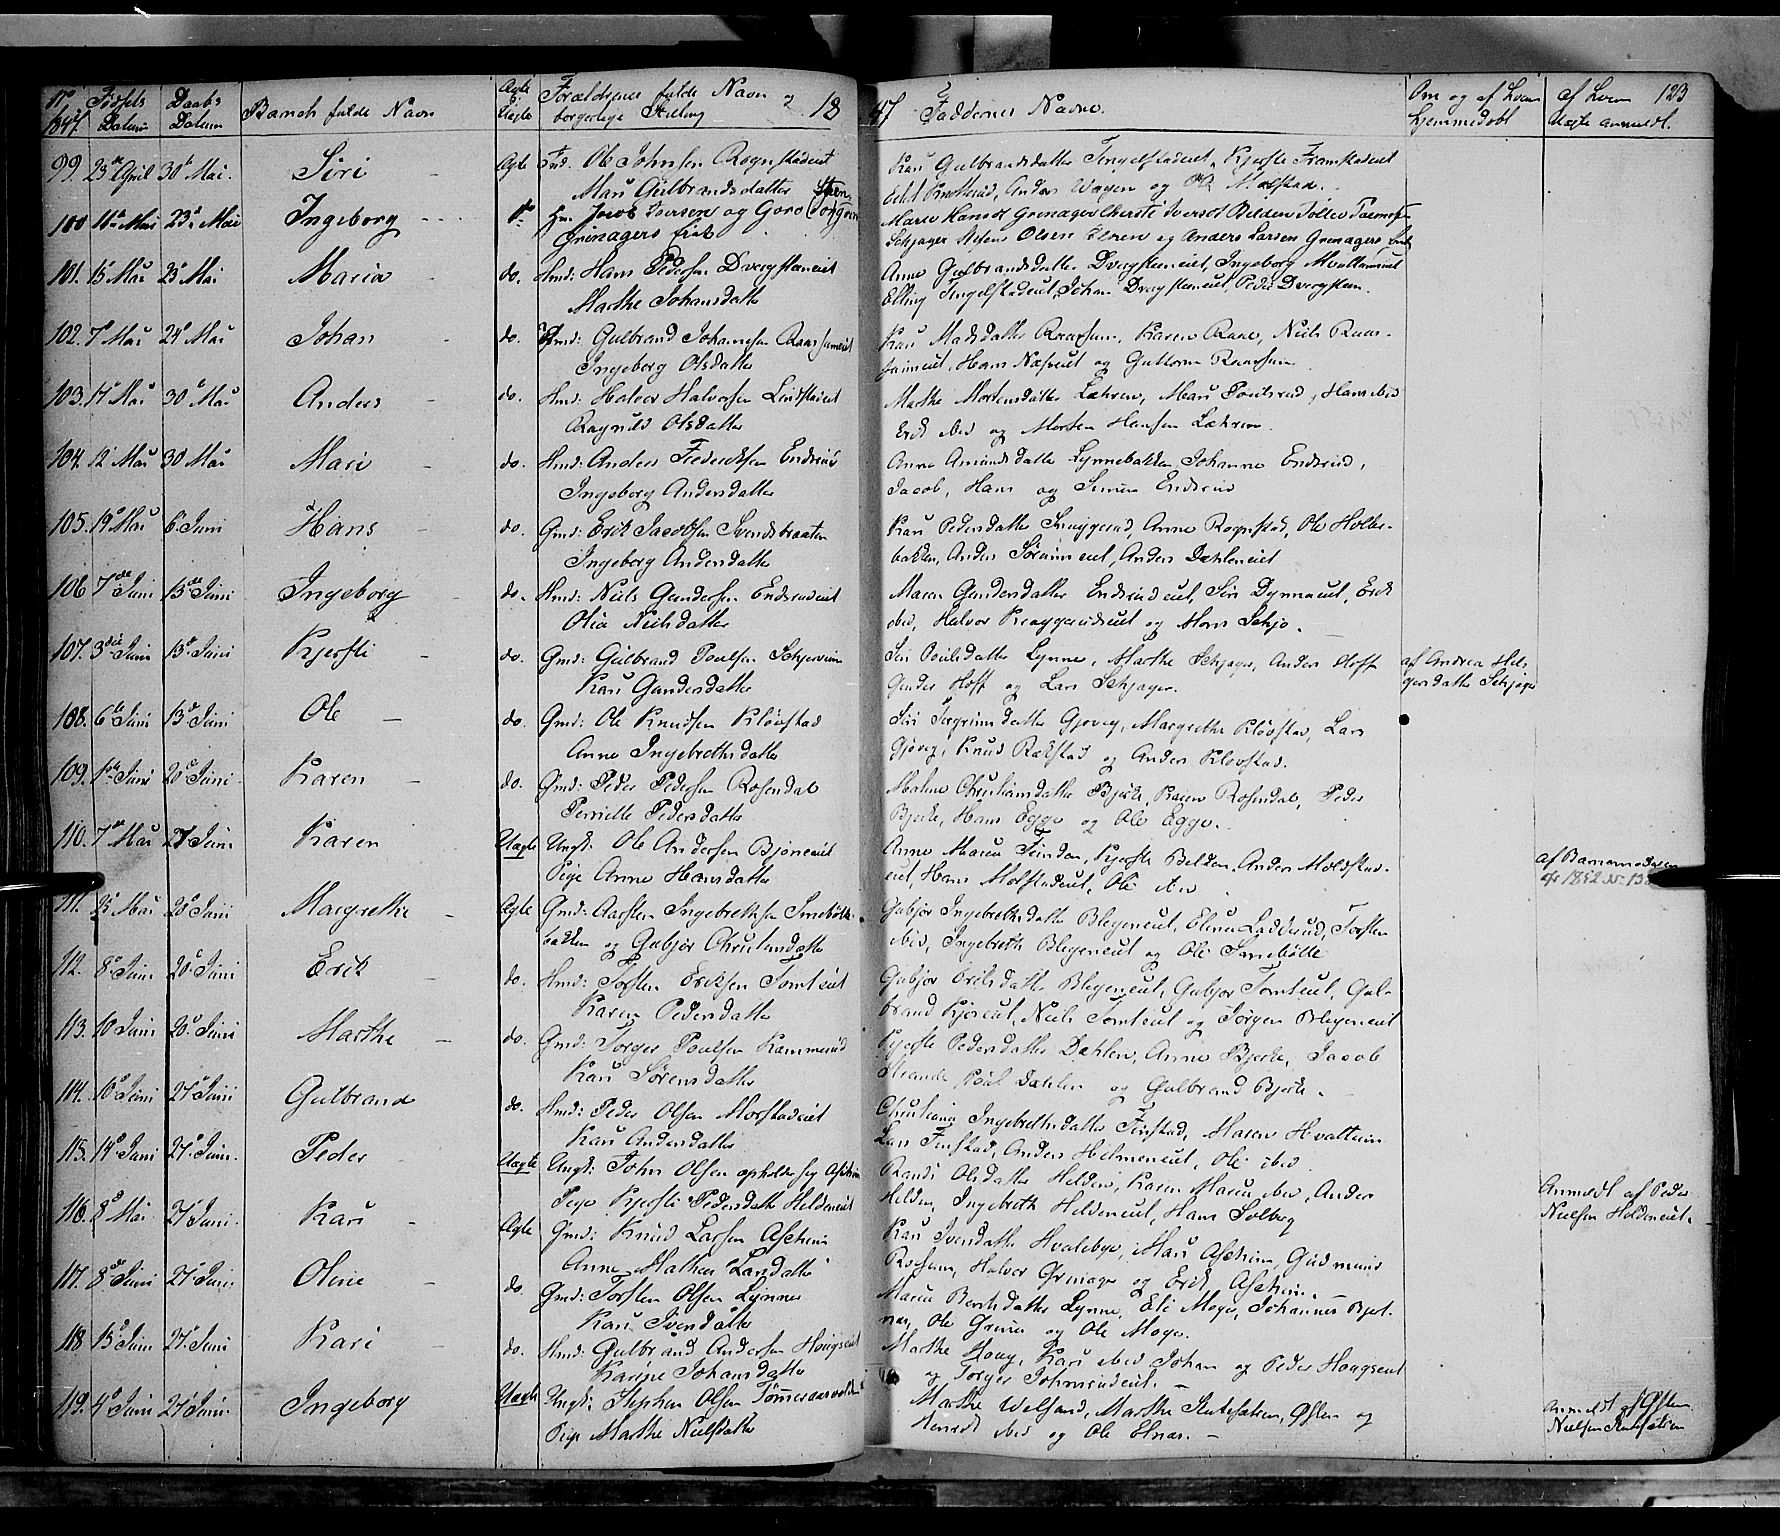 No 1847. Fødsels Datum Daabs Datum Barnets fulde Navn Ægte Uægte Forældrenes fulde Navn & borgerlige Stilling 18
47 Faddernes Navne. Om og af hvem hjemmedøbt af hvem Uægte anmeldt. 123
99. 23de April 30te Mai. Siri Ægte Ind. Ole Johnsen Rognstadeiet
Mari Gulbrandsdatter
Kari Gulbrandsdatter Tingelstadeiet, Kjersti Framstadeiet
Anders Wøyen og Ole Molstad.
100 11te Mai 23de Mai Ingeborg do Hm. Jacob Iversen og Goro
Grinagers eiet
Maren Hansdt Grenager Kherstie Iversdt Belden Tollev
Schjager Olsen og Anders Larsen Grenagers eiet
101. 15de Mai 23de Mai Maria do. Hmd: Hans Pedersen Dvergsteneiet
Marthe Johansdatter
Anne Gulbrandsdatter Dvergsteneiet, Ingeborg Hvattumeiet
Elling Tingelstadeiet, Johan Dvergsteneiet, Peder Dvergsten.
102. 7de Mai 24de Mai Johan do. Hmd: Gulbrand Johannesen Raassumeiet
Ingeborg Olsdatter
Kari Madsdatter Raassum, Karen Raae, Niels Raas-
sumeiet, Hans Næseiet og Guttorm Raassum
103. 17de Mai 30de Mai Anders do. Hmd: Halvor Halvorsen Lindstadeiet
Ragnild Olsdatter
Marthe Mortensdatter Læhren, Mari Poulsrud, Hans ibid
Erik ibid og Morten Hansen Læhren.
104. 12te Mai 30 Mai Mari do. Hmd: Anders Frederiksen Endrud
Ingeborg Andersdatter
Anne Amundsdatter Lynnebakken, Johanne Endrud,
Jacob, Hans og Simen Endrud
105. 19de Mai 6te Juni Hans do. Gmd: Erik Jacobsen Svendsbraaten
Ingeborg Andersdatter
Kari Pedersdatter Snuggerud, Anne Rognstad, Ole Holter-
bakken, Anders Sørumeiet, Anders Dæhleneiet
106 7de Juni 13de Juni Ingeborg do. Hmd: Niels Gundersen Endrudeiet
Olia Nielsdatter
Maren Gundersdatter Endrudeiet, Siri Dynnaeiet, Erik
ibid, Halvor Kraggerudseiet og Mons Schjo.
107. 3die Juni 13de Juni Kjersti do. Gmd: Gulbrand Poulsen Schjervum
Kari Gundersdatter
Siri Poulsdatter Lynne, Marthe Schjager, Anders Hoff
Gunder Hoff og Lars Schjager.
af Andrea Hel-
gersdatter Schjager
108. 6te Juni 13de Juni Ole do. Gmd: Ole Knudsen Kløvstad
Anne Ingebrethsdatter
Siri Torgrimsdatter Gjøvig, Margrethe Kløvstad, Lars
Gjøvig, Knud Rækstad og Anders Kløvstad.
109. 1ste Juni 20de Juni Karen do. Gmd: Peder Pedersen Rosendal
Pernille Pedersdatter
Malene Christiansdatter Bjerke, Karen Rosendal, Peder
Bjerke, Hans Egge og Ole Egge.
110. 7de Mai 27 Juni Karen Uægte Ungk: Ole Andersen Bjoneeiet
Pige Anne Hansdatter
Anne Marie Teinden, Kjersti Belden, Anders Moldstad-
eiet, Hans Molstadeiet, Ole ibid
af Barnemoderen
cfr 1852
111. 25 Mai 20de Juni Margrethe Ægte Gmd: Aarsten Ingebrethsen Smebøtte-
bakken og Gubjør Christensdatter
Gubjør Ingebrethsdatter Blegeneiet, Eline Ladderud, Torsten
ibid, Ingebreth Blegeneiet og Ole Smebøtte
112. 8de Juni 20de Juni Erik do. Hmd: Torsten Eriksen Tomteiet
Karen Pedersdatter
Gubjør Eriksdatter Blegeneiet, Gubjør Tomteiet, Gul-
brand Kjoseiet, Niels Tomteiet og Jørgen Blegeneiet
113. 10 Juni 20de Juni Marthe do. Gmd: Torger Poulsen Kammerud
Kari Sørensdatter
Kjersti Pedersdatter Dæhlen, Anne Bjerke, Jacob
Strande Poul Dæhlen og Gulbrand Bjerke.
114. 10de Juni 27de Juni Gulbrand do. Hmd: Peder Olsen Morstadeiet
Kari Andersdatter
Christiane Ingebrethsdatter Finstad, Maren Hvattum
Lars Finstad, Anders Helmeneiet, Ole ibid.
115. 14de Juni 27de Juni. Peder Uægte Ungk: John Olsen opholder sig Aschim
Pige Kjersti Pedersdatter Heldeneiet
Randi Olsdatter Helden, Karen Marie ibid, Anders
Helden, Ingebreth Heldeneiet, Hans Solberg
Anmeldt af Peder
Nielsen Heldeneiet.
116. 8de Mai 27 Juni. Kari Ægte Gmd: Knud Larsen Aschim
Anne Mathea Larsdatter
Kari Iversdatter Hvaleby, Mari Aschim, Gudmund
Rossum, Halvor Grinager og Erik Aschim.
117. 8de Juni 27de Juni Oline do. Gmd: Torsten Olsen Lynne
Kari Iversdatter
Maren Berthsdatter Lynne, Eli Moger, Johannes Bjel-
næs, Ole Grina og Ole Moger.
118. 13de Juni 27de Juni Kari do. Hmd: Gulbrand Andersen Hougseiet
Karine Johansdatter
Marthe Houg, Kari ibid Johan og Peder Hougseiet
og Torger Johnsrudeiet.
119. 4de Juni 27de Juni. Ingeborg Uægte Ungk: Stephan Olsen Tømmeraasvolden
Pige Marthe Nielsdatter
Marthe Welsand, Marthe Kutesæteren, Østen og
Henrik ibid og Ole Elnæs.
Anmeldt af Østen
Nielsen Kutesæteren